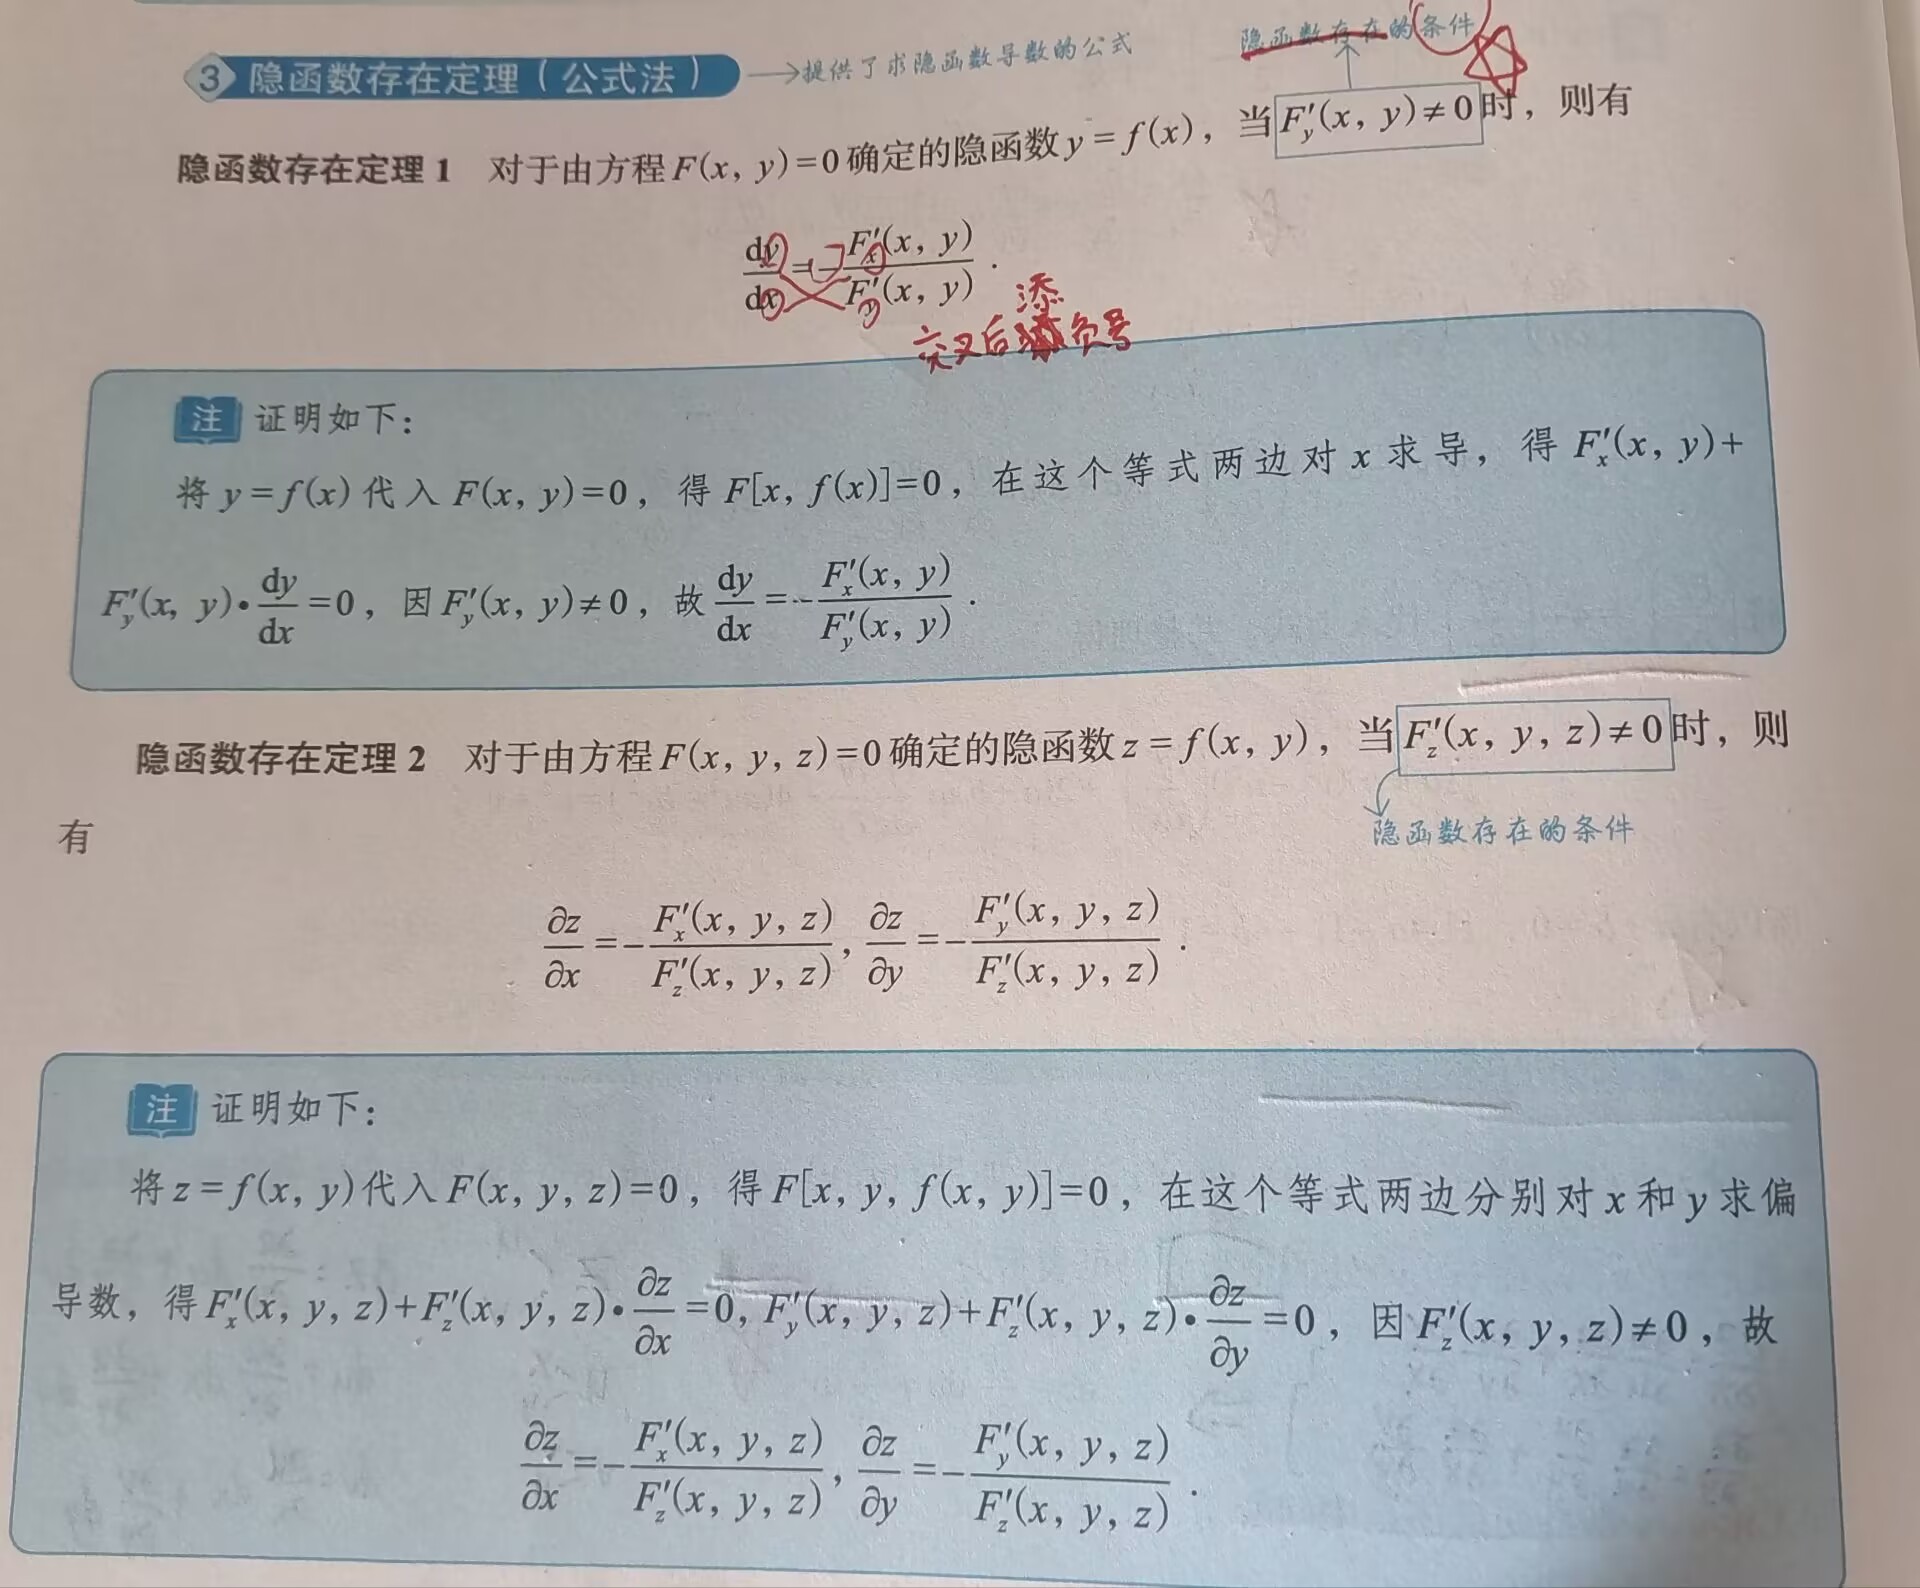 隐函数存在的条件
3 隐函数存在定理(公式法) →提供了求隐函数导数的公式
隐函数存在定理 1 对于由方程F(x, y)=0确定的隐函数y=f(x),当F′_y(x, y)≠0时,则有
dy/dx=-F′_x(x, y)/F′_y(x, y).
添
交叉后 负号
注 证明如下:
将y=f(x)代入F(x, y)=0,得F[x, f(x)]=0,在这个等式两边对x求导,得F′_x(x, y)+
F′_y(x, y)·dy/dx=0,因F′_y(x, y)≠0,故dy/dx=-F′_x(x, y)/F′_y(x, y).
隐函数存在定理 2 对于由方程F(x, y, z)=0确定的隐函数z=f(x, y),当F′_z(x, y, z)≠0时,则
有
隐函数存在的条件
∂z/∂x=-F′_x(x, y, z)/F′_z(x, y, z), ∂z/∂y=-F′_y(x, y, z)/F′_z(x, y, z).
注 证明如下:
将z=f(x, y)代入F(x, y, z)=0,得F[x, y, f(x, y)]=0,在这个等式两边分别对x和y求偏
导数,得F′_x(x, y, z)+F′_z(x, y, z)·∂z/∂x=0, F′_y(x, y, z)+F′_z(x, y, z)·∂z/∂y=0,因F′_z(x, y, z)≠0,故
∂z/∂x=-F′_x(x, y, z)/F′_z(x, y, z), ∂z/∂y=-F′_y(x, y, z)/F′_z(x, y, z).